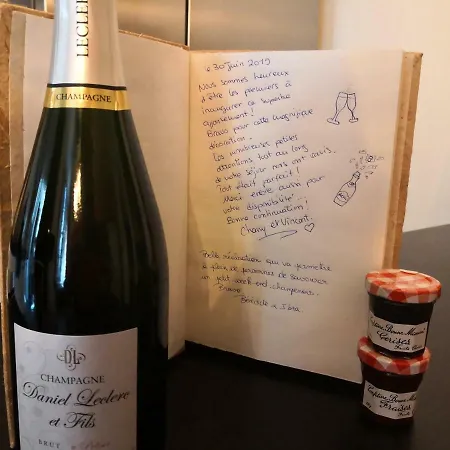 LECLER
CHAMPAGNE
D L
CHAMPAGNE
Daniel Leclerc
et Fils
BRUT
Le 30 juin 2019
Nous sommes heureux
d'être les premiers à
inaugurer ce superbe
appartement !
Bravo pour cette magnifique
décoration.
Les nombreuses petites
attentions tout au long
de notre séjour nous ont ravis.
Tout était parfait !
Merci encore aussi pour
votre disponibilité
Bonne continuation !
Chany et Vincent.
Belle réalisation qui va permettre
à plein de personnes de savourer
un petit week-end champenois.
Bénédicte &
Bonne Maman
Cerises
Bonne Maman
Fraises